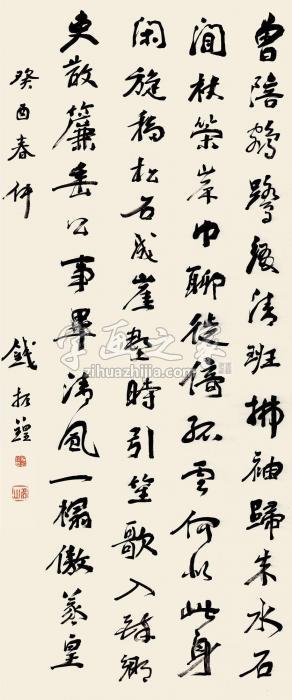 曾陪鵷鷺綴清班拂袖歸来水石
間杖策岸巾聊徙倚孤雲何似此身
閑旋移松石成崖壑時引笙歌入醉鄉
吏散簾垂公事畢清風一榻傲羲皇
癸酉春仲 錢振鍠
字画之家
zihuazhijia.com